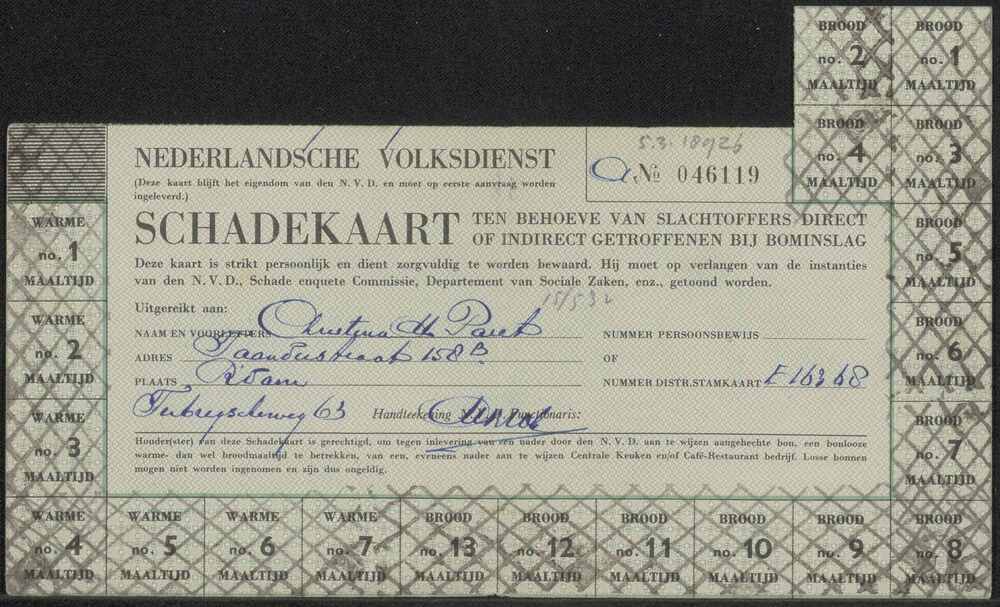 BROOD no. 2 MAALTIJD
BROOD no. 1 MAALTIJD
BROOD no. 4 MAALTIJD
BROOD no. 3 MAALTIJD
5.3.18926
NEDERLANDSCHE VOLKSDIENST
№ 046119
(Deze kaart blijft het eigendom van den N. V. D. en moet op eerste aanvraag worden
ingeleverd.)
SCHADEKAART TEN BEHOEVE VAN SLACHTOFFERS DIRECT
OF INDIRECT GETROFFENEN BIJ BOMINSLAG
Deze kaart is strikt persoonlijk en dient zorgvuldig te worden bewaard. Hij moet op verlangen van de instanties
van den N. V. D., Schade enquete Commissie, Departement van Sociale Zaken, enz., getoond worden.
Uitgereikt aan:
NAAM EN VOORLETTERS Christina
NUMMER PERSOONSBEWIJS
ADRES 158 B
OF
PLAATS R'dam
NUMMER DISTR.STAMKAART E 16368
Terbregscheweg 63 Handteekening Functionaris:
Houder(ster) van deze Schadekaart is gerechtigd, om tegen inlevering van een nader door den N. V. D. aan te wijzen aangehechte bon, een bonlooze
warme- dan wel broodmaaltijd te betrekken, van een, eveneens nader aan te wijzen Centrale Keuken en/of Café-Restaurant bedrijf. Losse bonnen
mogen niet worden ingenomen en zijn dus ongeldig.
WARME no. 1 MAALTIJD
WARME no. 2 MAALTIJD
WARME no. 3 MAALTIJD
BROOD no. 5 MAALTIJD
BROOD no. 6 MAALTIJD
BROOD no. 7 MAALTIJD
WARME no. 4 MAALTIJD
WARME no. 5 MAALTIJD
WARME no. 6 MAALTIJD
WARME no. 7 MAALTIJD
BROOD no. 13 MAALTIJD
BROOD no. 12 MAALTIJD
BROOD no. 11 MAALTIJD
BROOD no. 10 MAALTIJD
BROOD no. 9 MAALTIJD
BROOD no. 8 MAALTIJD